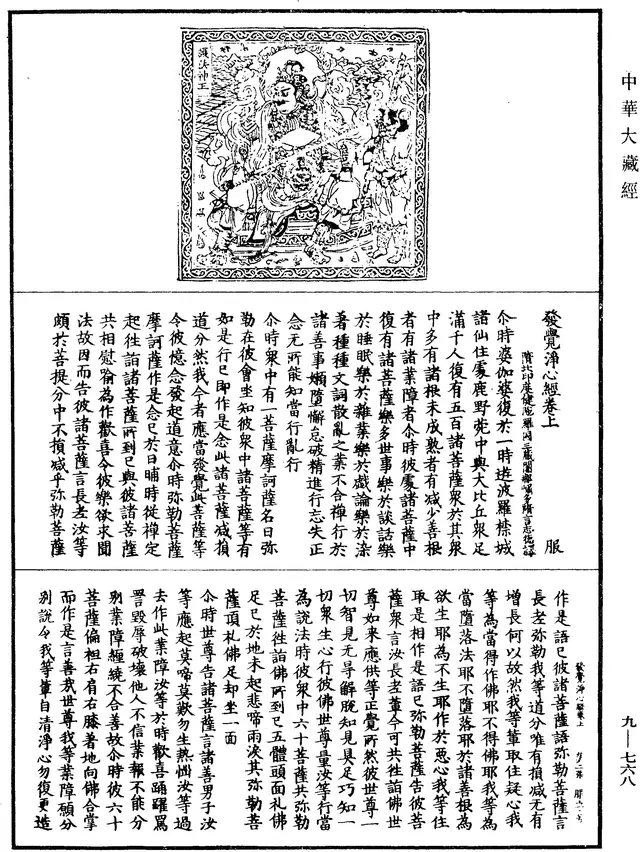 中華大藏經
護法神王
發覺淨心經卷上
服
隋北印度健陀羅國三藏闍那崛多隋言志德譯
尒時婆伽婆復於一時遊波羅㮈城
諸仙住處鹿野苑中與大比丘眾足
滿千人復有五百諸菩薩眾於其眾
中多有諸根未成熟者有減少善根
者有諸業障者尒時彼處諸菩薩中
復有諸菩薩樂多世事樂於談話樂
於睡眠樂於雜業樂於戲論樂於染
著種種文詞散亂之業不合禪行於
諸善事嬾墮懈怠破精進行忘失正
念无所能知當行亂行
尒時眾中有一菩薩摩訶薩名曰弥
勒在彼會坐知彼眾中諸菩薩等有
如是行已即作是念此諸菩薩減損
道分然我今者應當發覺此菩薩等
令彼憶念發起道意尒時弥勒菩薩
摩訶薩作是念已於日晡時從禪定
起往詣諸菩薩所到已與彼諸菩薩
共相慰喻為作歡喜令彼樂欲求聞
法故因而告彼諸菩薩言長老汝等
頗於菩提分中不損減乎弥勒菩薩
發覺淨心經卷上
作是語已彼諸菩薩語弥勒菩薩言
長老弥勒我等道分唯有損減无有
增長何以故然我等輩取住疑心我
等為當得作佛耶不得佛耶我等為
當墮落法耶不墮落耶於諸善根為
欲生耶為不生耶作於惡心我等住
取是相作是語已弥勒菩薩告彼菩
薩眾言汝長老輩今可共往詣佛世
尊如來應供等正覺所然彼世尊一
切智見无㝵解脫知見具足巧知一
切眾生心行彼佛世尊量汝等行當
為說法時彼眾中六十菩薩共弥勒
菩薩往詣佛所到已五體頭面礼佛
足已於地未起悲啼雨淚其弥勒菩
薩頂礼佛足却坐一面
尒時世尊告諸菩薩言諸善男子汝
等應起莫啼莫歎勿生熱惱汝等過
去作此業障汝等於時歡喜踊躍罵
詈毀辱破壞他人不信業報不能分
別業障纏繞不合善故尒時彼六十
菩薩偏袒右肩右膝著地向佛合掌
而作是言善哉世尊我等業障願分
別說令我等輩自清淨心勿復更造
九—七六八